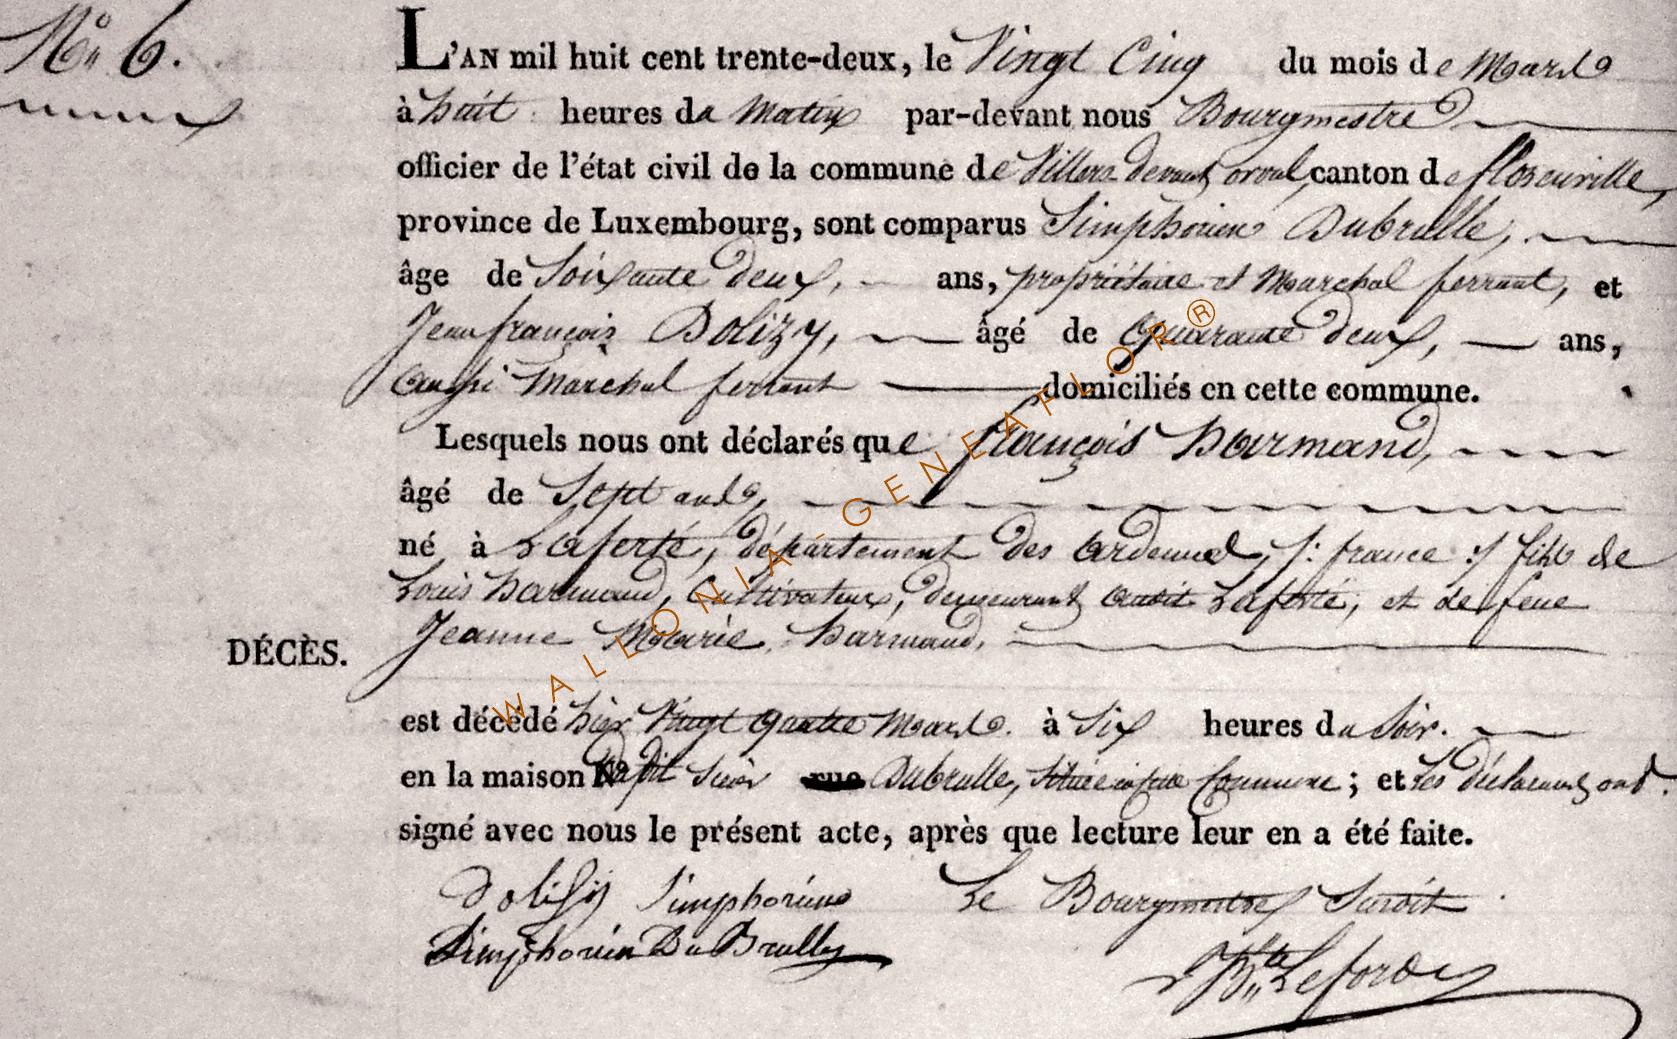 N.° 6.
L'AN mil huit cent trente-deux, le Vingt Cinq du mois de Mars
à huit heures du Matin par-devant nous Bourgmestre
officier de l'état civil de la commune de Villers devant orval, canton de florenville,
province de Luxembourg, sont comparus Simphorien Dubrulle,
âge de Soixante deux, ans, propriétaire et Marchal ferrant, et
Jean françois Dolizy, âgé de Quarante deux, ans,
aussi Marchal ferrant domiciliés en cette commune.
Lesquels nous ont déclarés que françois harmand,
âgé de Sept ans,
né à Laferté, département des ardennes, /: france :/ fils de
Louis harmand, Cultivateur, demeurant audit Laferté, et de feue
Jeanne Marie harmand,
DÉCÈS.
est décédé hier Vingt quatre Mars à Six heures du Soir.
en la maison du dit Sieur rue Dubrulle, Située en cette Commune ; et les déclarants ont
signé avec nous le présent acte, après que lecture leur en a été faite.
Dolisy Simphorien Le Bourgmestre Susdit
Simphorien Du Brulle
J. Bte Leford
WALLONIA-GENEAFLOR®